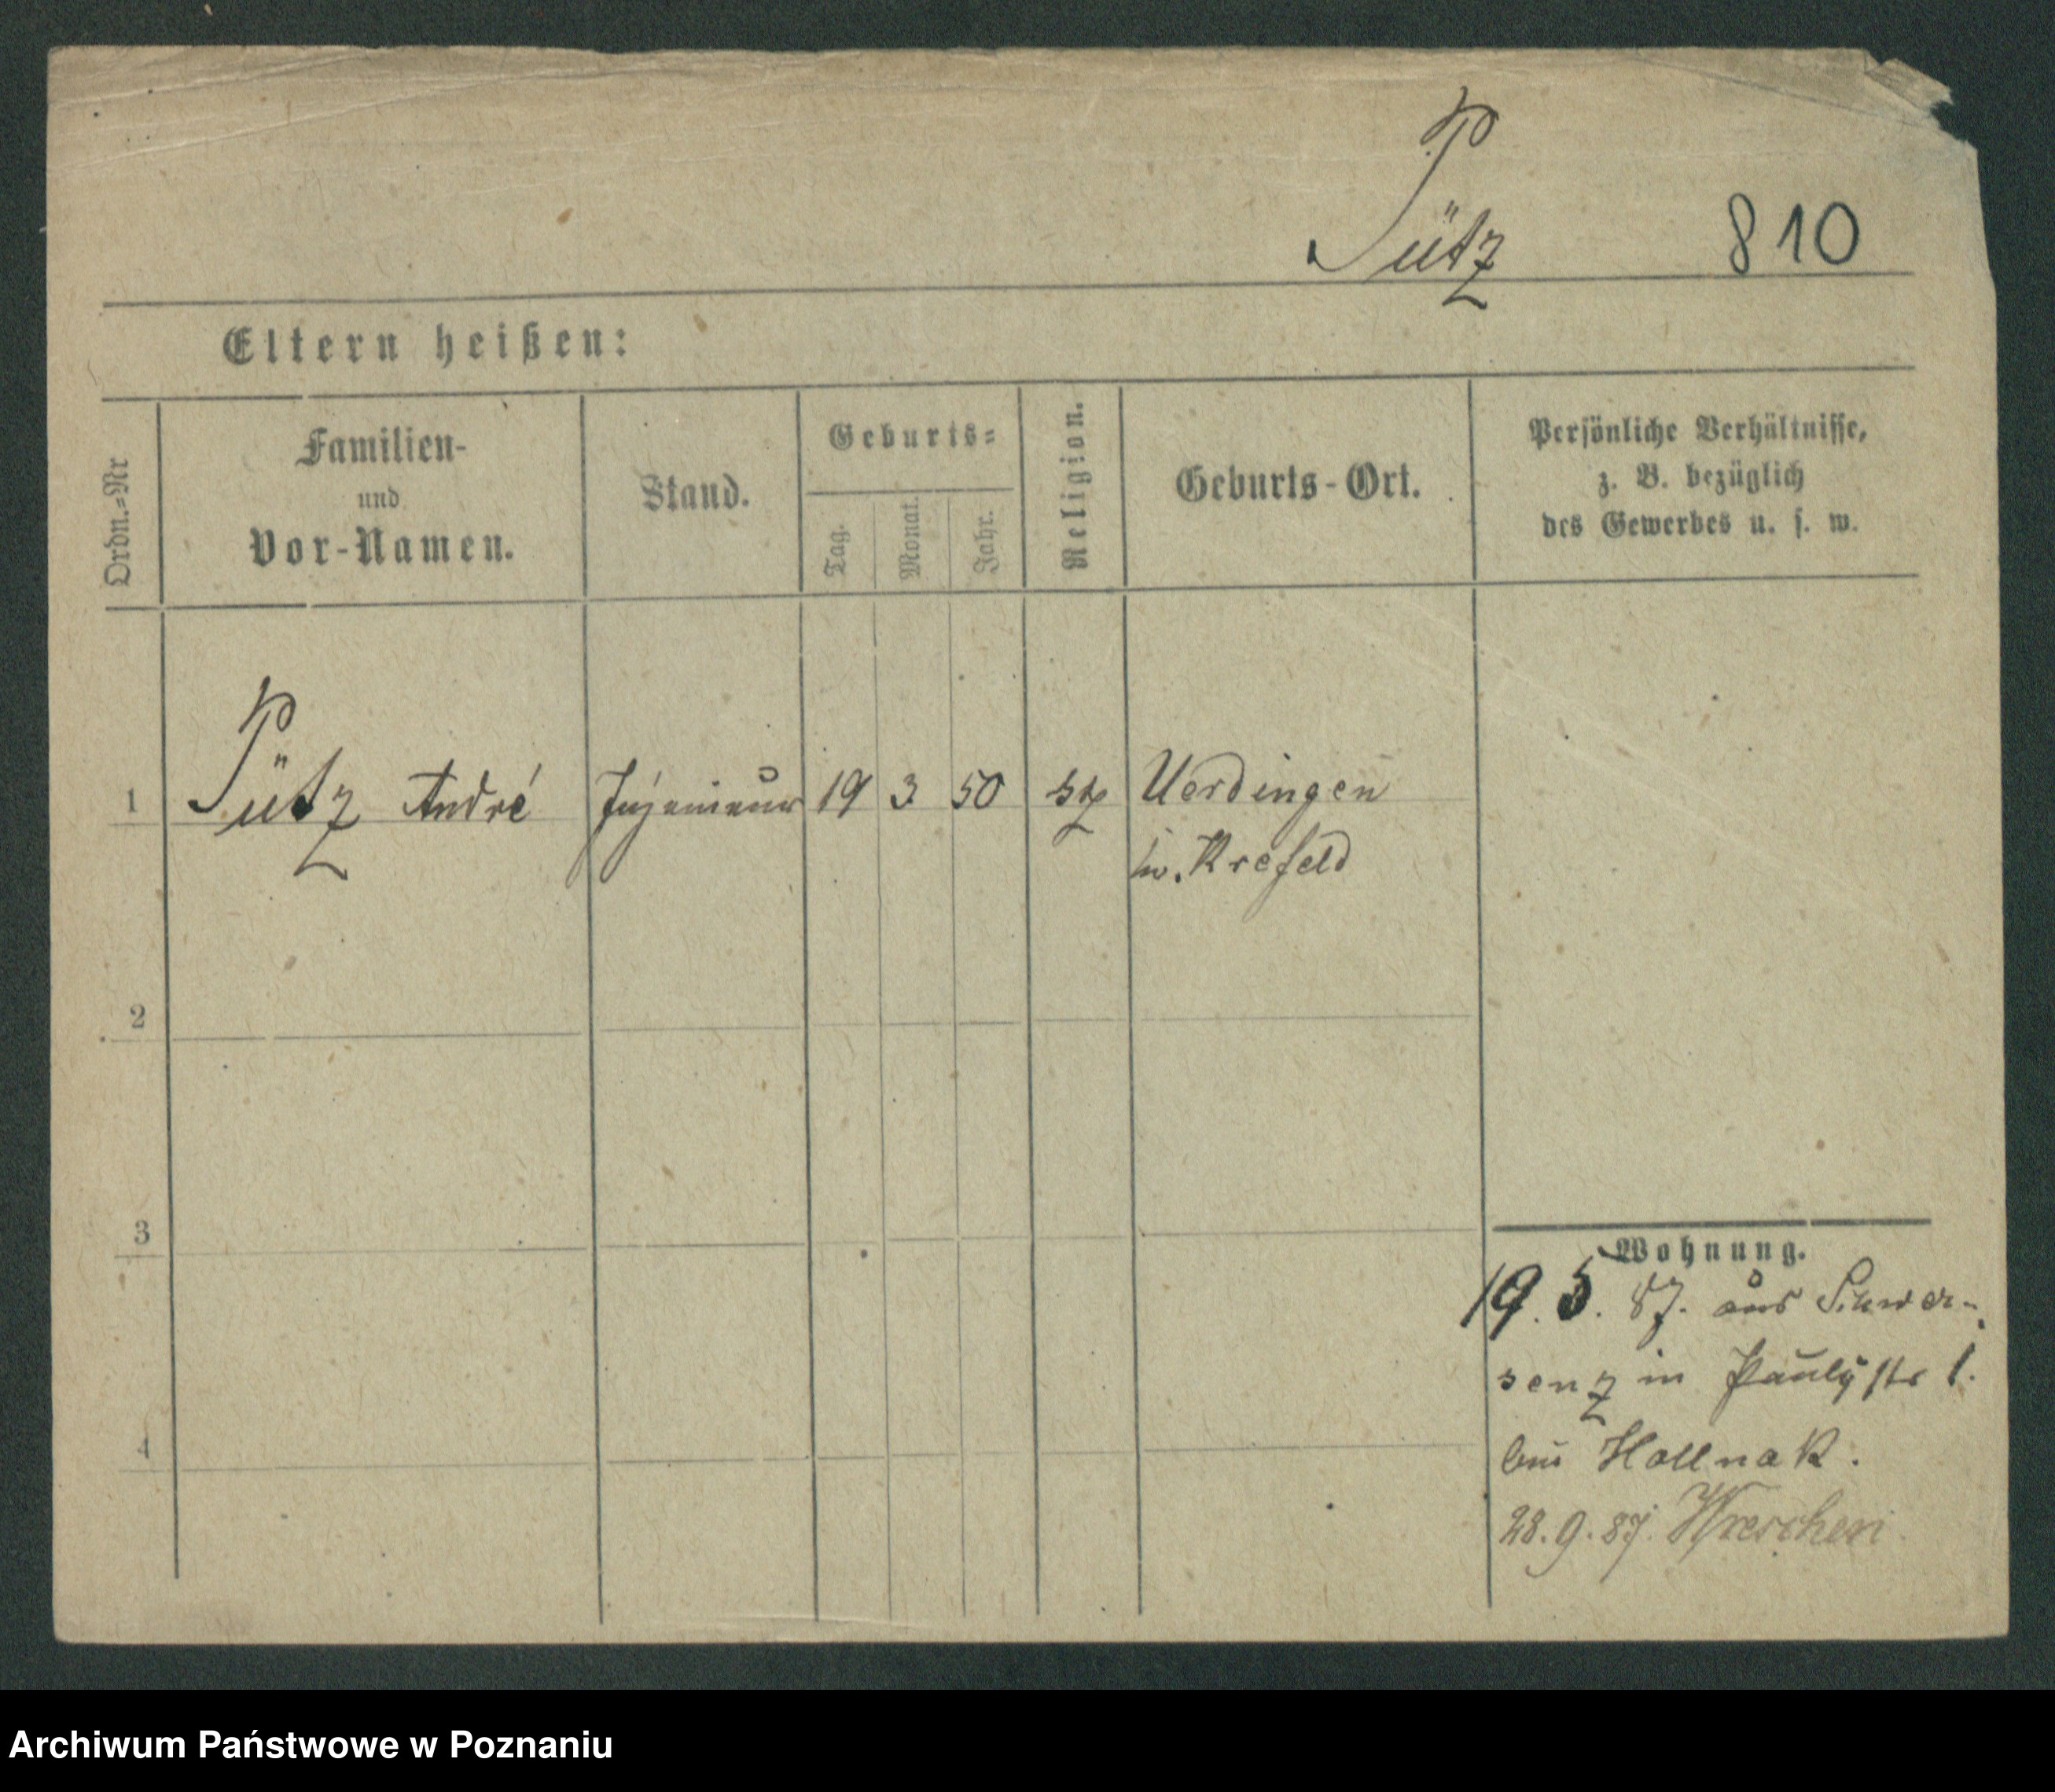 Pütz 810
Eltern heißen:
Ordn.=Nr
Familien-
und
Vor-Namen.
Stand.
Geburts=
Tag.
Monat.
Jahr.
Religion.
Geburts-Ort.
Persönliche Verhältnisse,
z. B. bezüglich
des Gewerbes u. s. w.
1 Pütz André Ingenieur 19 3 50 Uerdingen
Krefeld
2
3
4
Wohnung.
19. 5. 87. aus Schwer-
senz in Paulystr 1.
bei Hollnak.
28. 9. 87. Wreschen
Archiwum Państwowe w Poznaniu